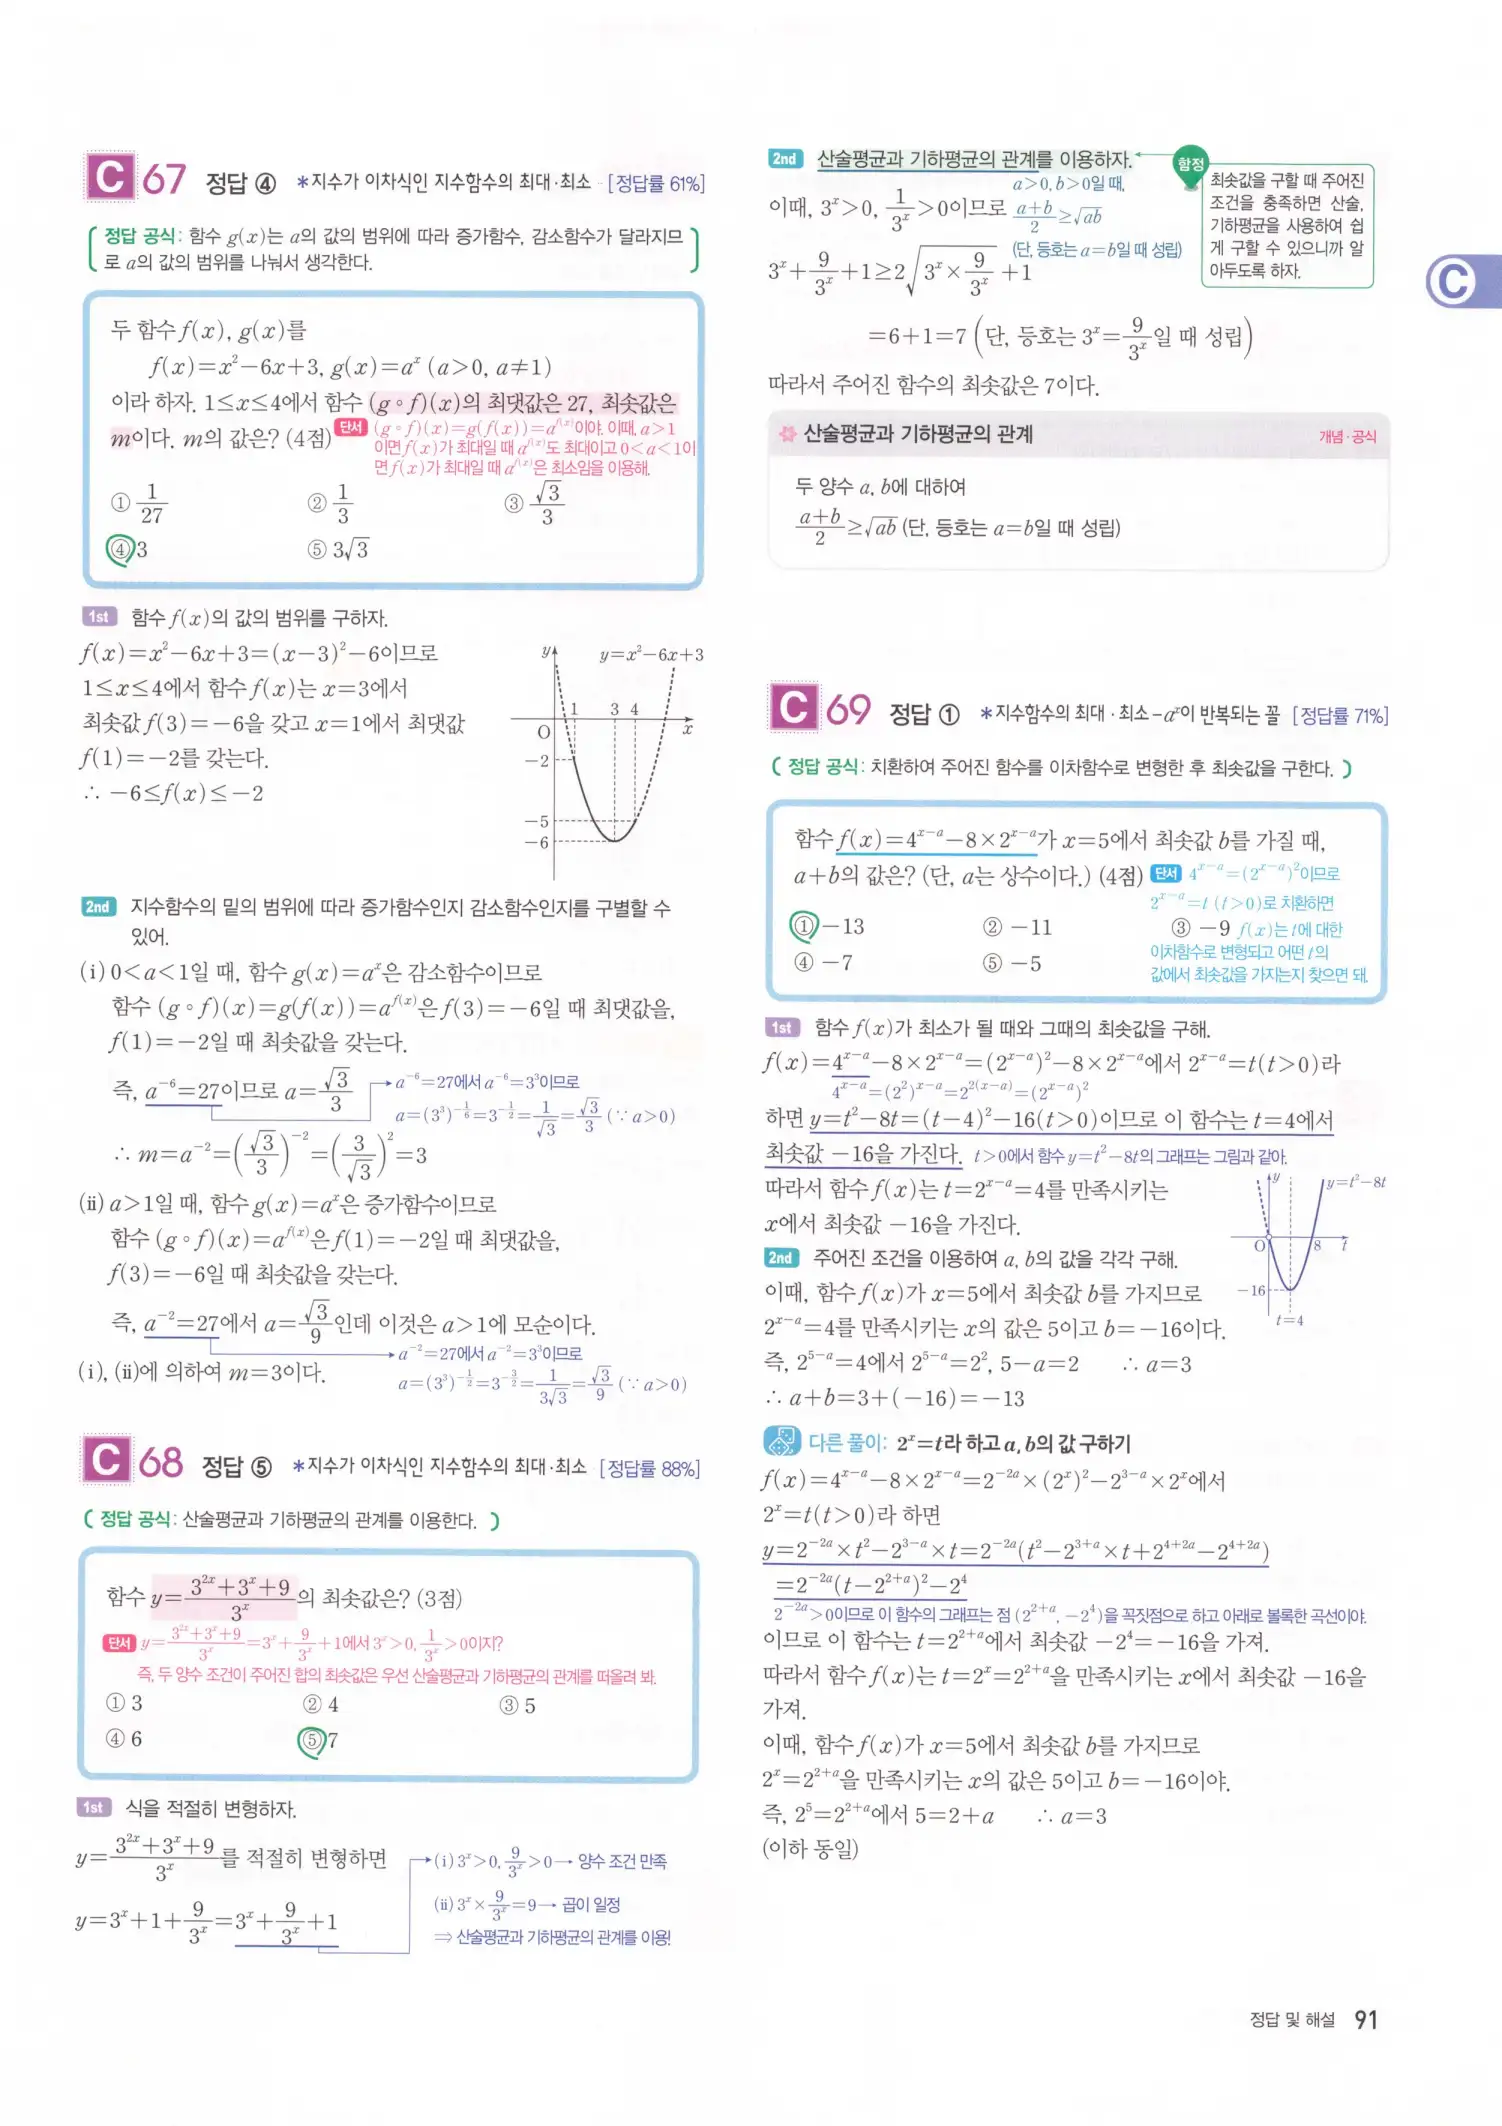 C 67 정답 ④ *지수가 이차식인 지수함수의 최대·최소 [정답률 61%]
정답 공식: 함수 g(x)는 a의 값의 범위에 따라 증가함수, 감소함수가 달라지므
로 a의 값의 범위를 나눠서 생각한다.
두 함수 f(x), g(x)를
f(x)=x²−6x+3, g(x)=aˣ (a>0, a≠1)
이라 하자. 1≤x≤4에서 함수 (g∘f)(x)의 최댓값은 27, 최솟값은
m이다. m의 값은? (4점) 단서 (g∘f)(x)=g(f(x))=a^{f(x)}이야. 이때, a>1
이면 f(x)가 최대일 때 a^{f(x)}도 최대이고 0<a<1이
면 f(x)가 최대일 때 a^{f(x)}은 최소임을 이용해.
① 1/27 ② 1/3 ③ √3/3
④ 3 ⑤ 3√3
1st 함수 f(x)의 값의 범위를 구하자.
f(x)=x²−6x+3=(x−3)²−6이므로
1≤x≤4에서 함수 f(x)는 x=3에서
최솟값 f(3)=−6을 갖고 x=1에서 최댓값
f(1)=−2를 갖는다.
∴ −6≤f(x)≤−2
y y=x²−6x+3
1 3 4
O x
−2
−5
−6
2nd 지수함수의 밑의 범위에 따라 증가함수인지 감소함수인지를 구별할 수
있어.
(i) 0<a<1일 때, 함수 g(x)=aˣ은 감소함수이므로
함수 (g∘f)(x)=g(f(x))=a^{f(x)}은 f(3)=−6일 때 최댓값을,
f(1)=−2일 때 최솟값을 갖는다.
즉, a⁻⁶=27이므로 a=√3/3
a⁻⁶=27에서 a⁻⁶=3³이므로
a=(3³)^{−1/6}=3^{−1/2}=1/√3=√3/3 (∵ a>0)
∴ m=a⁻²=(√3/3)⁻²=(3/√3)²=3
(ii) a>1일 때, 함수 g(x)=aˣ은 증가함수이므로
함수 (g∘f)(x)=a^{f(x)}은 f(1)=−2일 때 최댓값을,
f(3)=−6일 때 최솟값을 갖는다.
즉, a⁻²=27에서 a=√3/9인데 이것은 a>1에 모순이다.
a⁻²=27에서 a⁻²=3³이므로
a=(3³)^{−1/2}=3^{−3/2}=1/3√3=√3/9 (∵ a>0)
(i), (ii)에 의하여 m=3이다.
C 68 정답 ⑤ *지수가 이차식인 지수함수의 최대·최소 [정답률 88%]
정답 공식: 산술평균과 기하평균의 관계를 이용한다.
함수 y=(3²ˣ+3ˣ+9)/3ˣ의 최솟값은? (3점)
단서 y=(3²ˣ+3ˣ+9)/3ˣ=3ˣ+9/3ˣ+1에서 3ˣ>0, 1/3ˣ>0이지?
즉, 두 양수 조건이 주어진 합의 최솟값은 우선 산술평균과 기하평균의 관계를 떠올려 봐.
① 3 ② 4 ③ 5
④ 6 ⑤ 7
1st 식을 적절히 변형하자.
y=(3²ˣ+3ˣ+9)/3ˣ를 적절히 변형하면
y=3ˣ+1+9/3ˣ=3ˣ+9/3ˣ+1
(i) 3ˣ>0, 9/3ˣ>0→ 양수 조건 만족
(ii) 3ˣ×9/3ˣ=9→ 곱이 일정
⇒ 산술평균과 기하평균의 관계를 이용!
2nd 산술평균과 기하평균의 관계를 이용하자.
이때, 3ˣ>0, 1/3ˣ>0이므로
a>0, b>0일 때,
(a+b)/2≥√ab
(단, 등호는 a=b일 때 성립)
함정
최솟값을 구할 때 주어진
조건을 충족하면 산술,
기하평균을 사용하여 쉽
게 구할 수 있으니까 알
아두도록 하자.
3ˣ+9/3ˣ+1≥2√(3ˣ×9/3ˣ)+1
=6+1=7 (단, 등호는 3ˣ=9/3ˣ일 때 성립)
따라서 주어진 함수의 최솟값은 7이다.
산술평균과 기하평균의 관계 개념·공식
두 양수 a, b에 대하여
(a+b)/2≥√ab (단, 등호는 a=b일 때 성립)
C
C 69 정답 ① *지수함수의 최대·최소−aˣ이 반복되는 꼴 [정답률 71%]
정답 공식: 치환하여 주어진 함수를 이차함수로 변형한 후 최솟값을 구한다.
함수 f(x)=4^{x−a}−8×2^{x−a}가 x=5에서 최솟값 b를 가질 때,
a+b의 값은? (단, a는 상수이다.) (4점) 단서 4^{x−a}=(2^{x−a})²이므로
2^{x−a}=t (t>0)로 치환하면
① −13 ② −11 ③ −9 f(x)는 t에 대한
이차함수로 변형되고 어떤 t의
④ −7 ⑤ −5
값에서 최솟값을 가지는지 찾으면 돼.
1st 함수 f(x)가 최소가 될 때와 그때의 최솟값을 구해.
f(x)=4^{x−a}−8×2^{x−a}=(2^{x−a})²−8×2^{x−a}에서 2^{x−a}=t(t>0)라
4^{x−a}=(2²)^{x−a}=2^{2(x−a)}=(2^{x−a})²
하면 y=t²−8t=(t−4)²−16(t>0)이므로 이 함수는 t=4에서
최솟값 −16을 가진다. t>0에서 함수 y=t²−8t의 그래프는 그림과 같아.
따라서 함수 f(x)는 t=2^{x−a}=4를 만족시키는
x에서 최솟값 −16을 가진다.
y y=t²−8t
O 8 t
−16
t=4
2nd 주어진 조건을 이용하여 a, b의 값을 각각 구해.
이때, 함수 f(x)가 x=5에서 최솟값 b를 가지므로
2^{x−a}=4를 만족시키는 x의 값은 5이고 b=−16이다.
즉, 2^{5−a}=4에서 2^{5−a}=2², 5−a=2 ∴ a=3
∴ a+b=3+(−16)=−13
다른 풀이: 2ˣ=t라 하고 a, b의 값 구하기
f(x)=4^{x−a}−8×2^{x−a}=2^{−2a}×(2ˣ)²−2^{3−a}×2ˣ에서
2ˣ=t(t>0)라 하면
y=2^{−2a}×t²−2^{3−a}×t=2^{−2a}(t²−2^{3+a}×t+2^{4+2a}−2^{4+2a})
=2^{−2a}(t−2^{2+a})²−2⁴
2^{−2a}>0이므로 이 함수의 그래프는 점 (2^{2+a}, −2⁴)을 꼭짓점으로 하고 아래로 볼록한 곡선이야.
이므로 이 함수는 t=2^{2+a}에서 최솟값 −2⁴=−16을 가져.
따라서 함수 f(x)는 t=2ˣ=2^{2+a}을 만족시키는 x에서 최솟값 −16을
가져.
이때, 함수 f(x)가 x=5에서 최솟값 b를 가지므로
2ˣ=2^{2+a}을 만족시키는 x의 값은 5이고 b=−16이야.
즉, 2⁵=2^{2+a}에서 5=2+a ∴ a=3
(이하 동일)
정답 및 해설 91